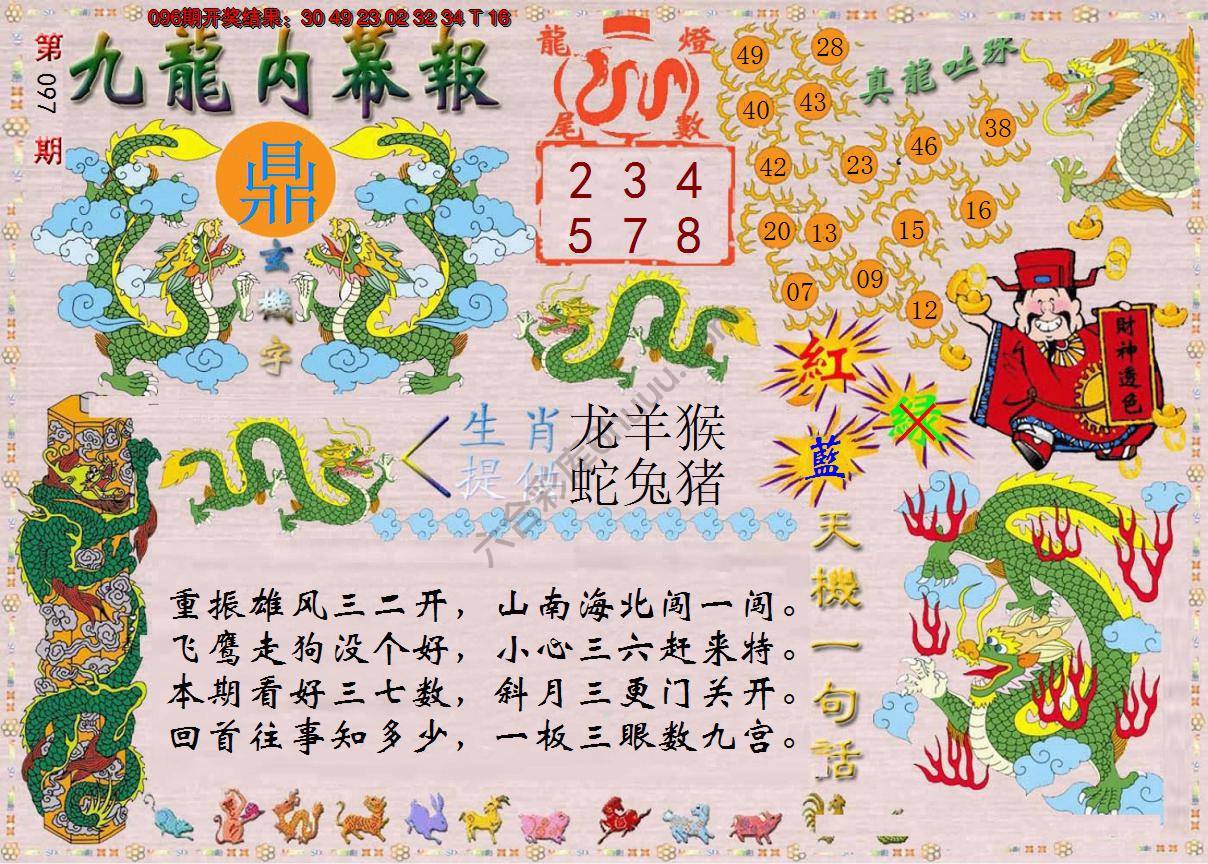 096期开奖结果：30 49 23 02 32 34 T 16
第097期
九龍内幕報
鼎
玄機字
龍燈
尾數
2 3 4
5 7 8
真龍吐珠
49 28
40 43
42 23 46 38
20 13 15 16
07 09 12
紅
绿
藍
財神透色
生肖 龙羊猴
提供 蛇兔猪
重振雄风三二开，山南海北闯一闯。
飞鹰走狗没个好，小心三六赶来特。
本期看好三七数，斜月三更门关开。
回首往事知多少，一板三眼数九宫。
天機一句話